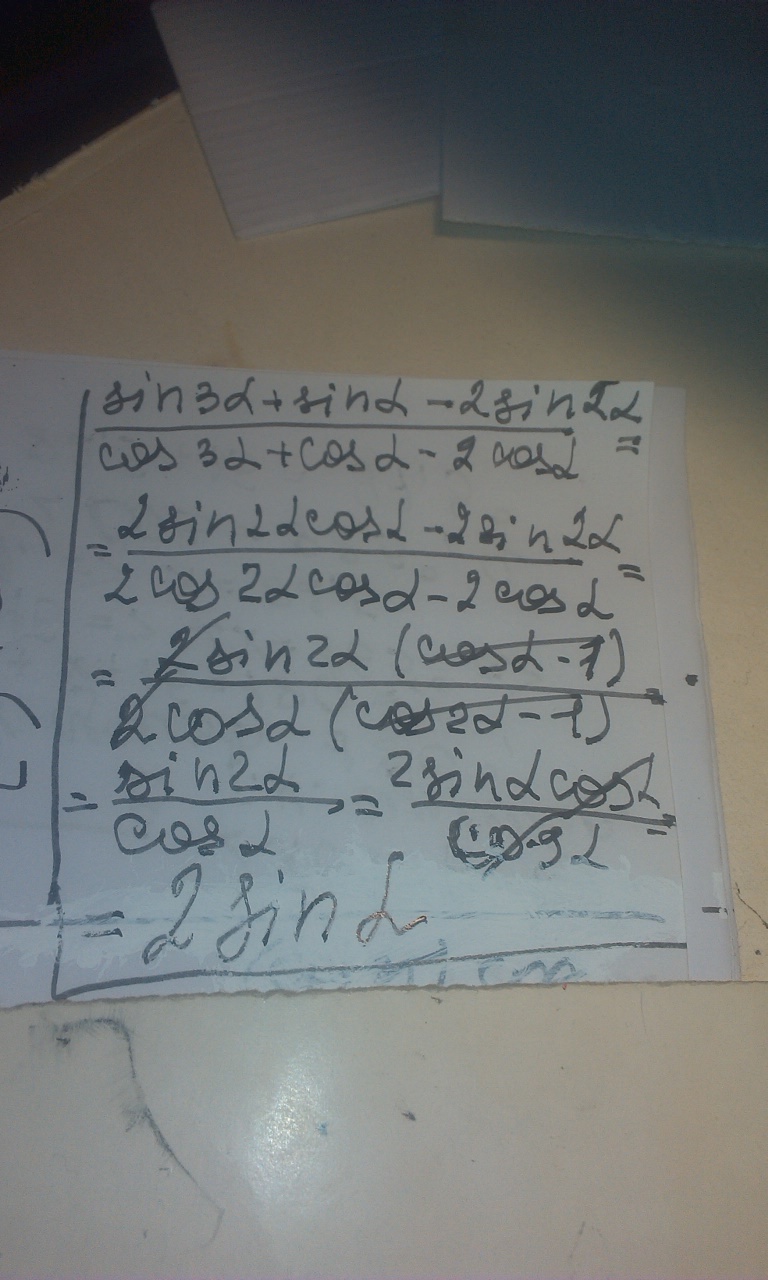 sin3α+sinα-2sin2α
cos 3α+cosα-2cosα =
= 2sin2αcosα-2sin2α
2cos2αcosα-2cosα =
= 2sin2α(cosα-1)
2cosα(cos2α-1)
= sin2α = 2sinαcosα
cosα cosα =
= 2sinα